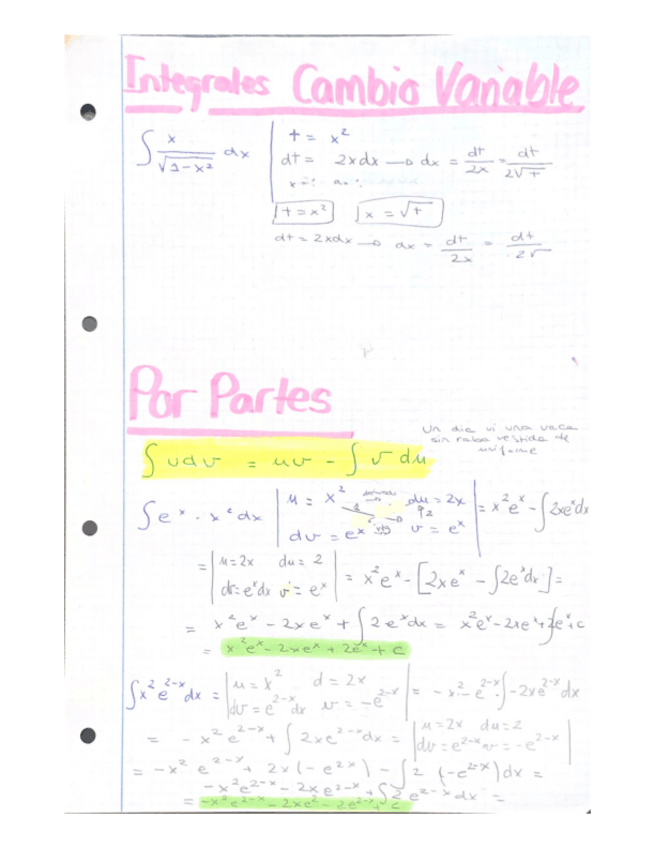 Integrales Cambio Variable
∫ x/√(1-x²) dx | t = x²
dt = 2xdx → dx = dt/2x = dt/2√t
t = x²   x = √t
dt = 2xdx → dx = dt/2x = dt/2√
Por Partes
Un dia vi una vaca
sin rabo vestida de
uniforme
∫ udv = uv - ∫ v du
∫ eˣ · x² dx | u = x²   du = 2x | = x²eˣ - ∫ 2xeˣdx
dv = eˣ   v = eˣ
= | u = 2x   du = 2 |
| dv = eˣdx   v = eˣ | = x²eˣ - [2xeˣ - ∫2eˣdx] =
= x²eˣ - 2xeˣ + ∫ 2eˣdx = x²eˣ - 2xeˣ + 2eˣ + c
= x²eˣ - 2xeˣ + 2eˣ + c
∫x² e²⁻ˣ dx = | u = x²   d = 2x | = - x² e²⁻ˣ · ∫ -2xe²⁻ˣ dx
| dv = e²⁻ˣ dx   v = -e²⁻ˣ |
= - x² e²⁻ˣ + ∫ 2xe²⁻ˣ dx = | u = 2x   du = 2 |
| dv = e²⁻ˣ   v = -e²⁻ˣ |
= -x² e²⁻ˣ + 2x (-e²ˣ) - ∫ 2 (-e²⁻ˣ) dx =
-x²e²⁻ˣ - 2xe²⁻ˣ + ∫ 2 e²⁻ˣ dx =
= -x²e²⁻ˣ - 2xe² - 2e²⁻ˣ + c